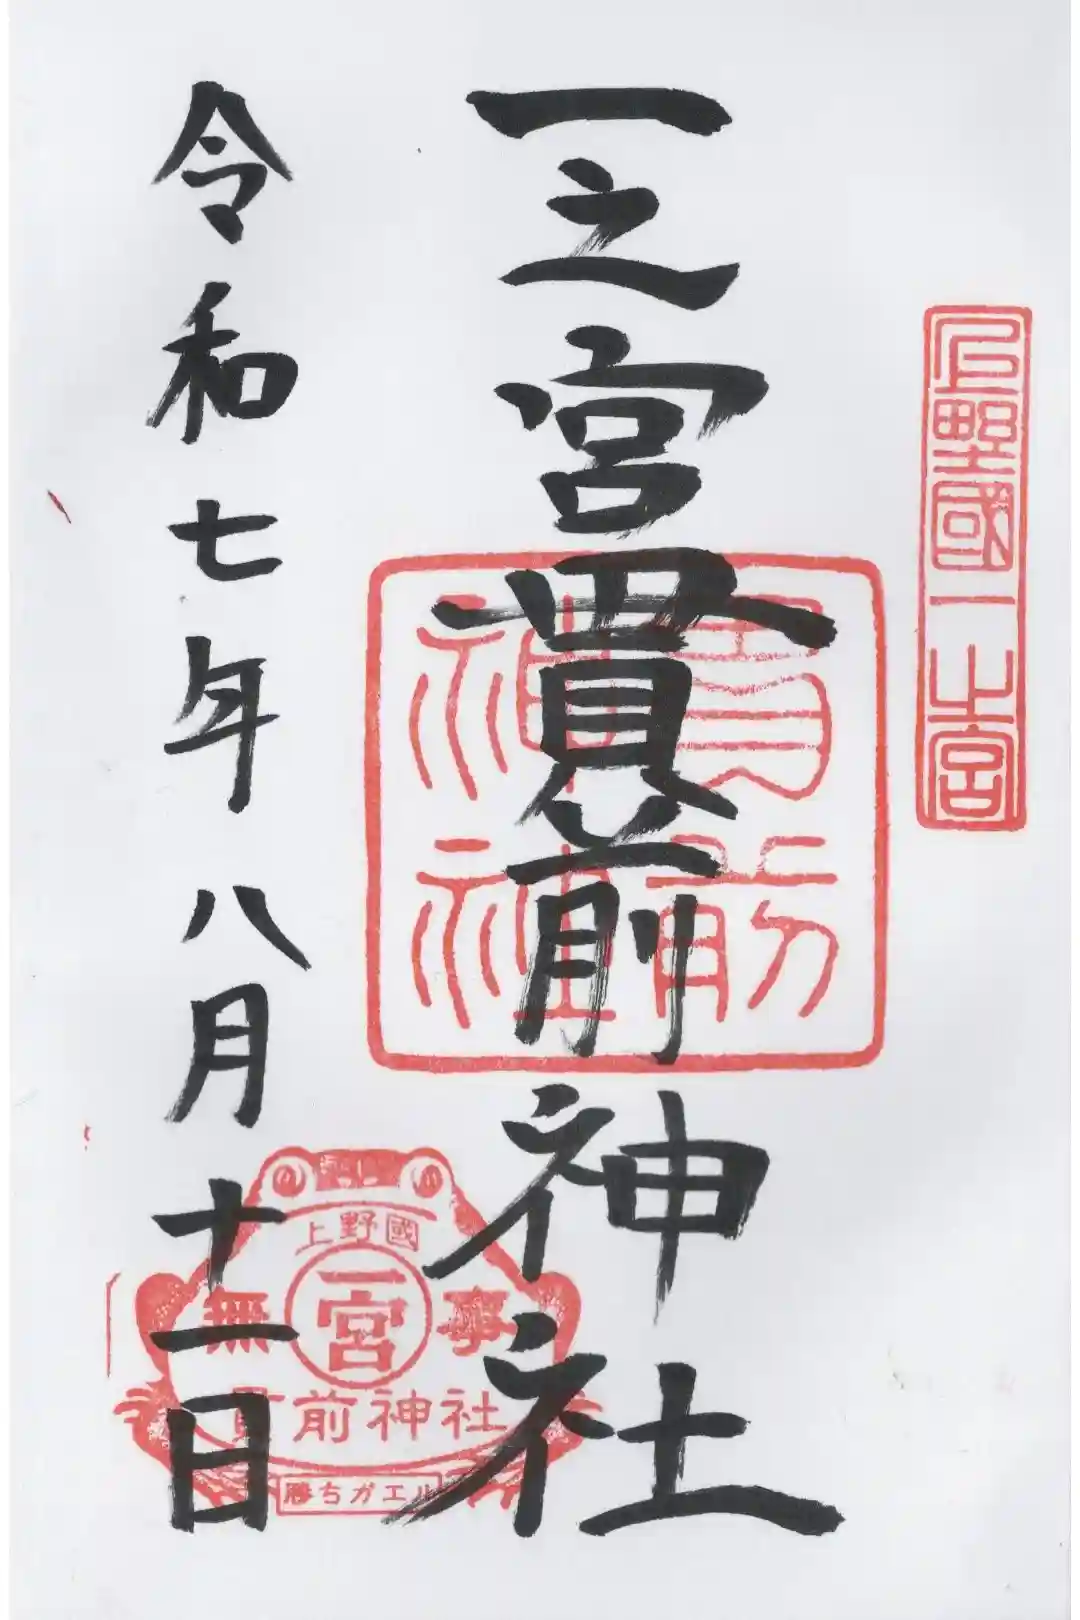 上野國一之宮
一之宮貫前神社
貫前
神社
令和七年八月十一日
上野國
無事
一宮
貫前神社
勝ちガエル